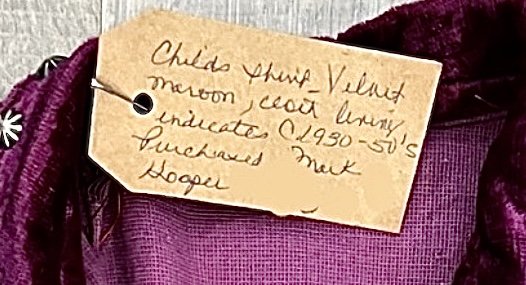 Childs shirt - Velvet
maroon, clott lining
indicates C1930-50's
Purchased Mark
Hooper